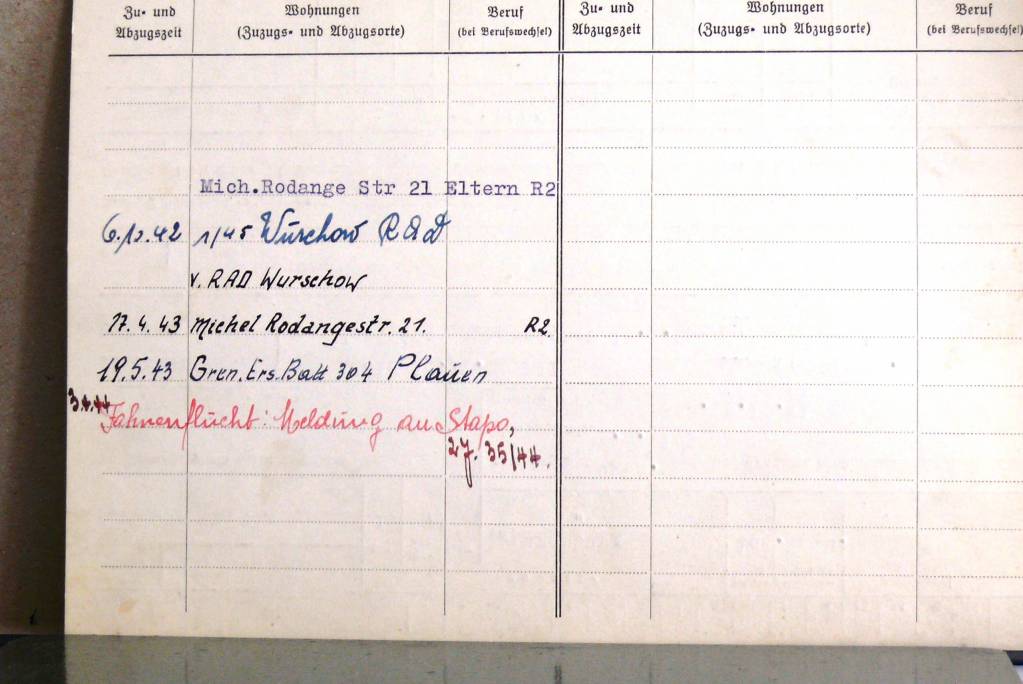 Zu- und Abzugszeit
Wohnungen (Zuzugs- und Abzugsorte)
Beruf (bei Berufswechsel)
Zu- und Abzugszeit
Wohnungen (Zuzugs- und Abzugsorte)
Beruf (bei Berufswechsel)
Mich.Rodange Str 21 Eltern R2
6.12.42 1/45 Wurschow RAD
v. RAD Wurschow
17.4.43 Michel Rodangestr. 21. R2.
19.5.43 Gren. Ers. Batt 304 Plauen
Fahnenflucht: Meldung an Stapo,
35/44.